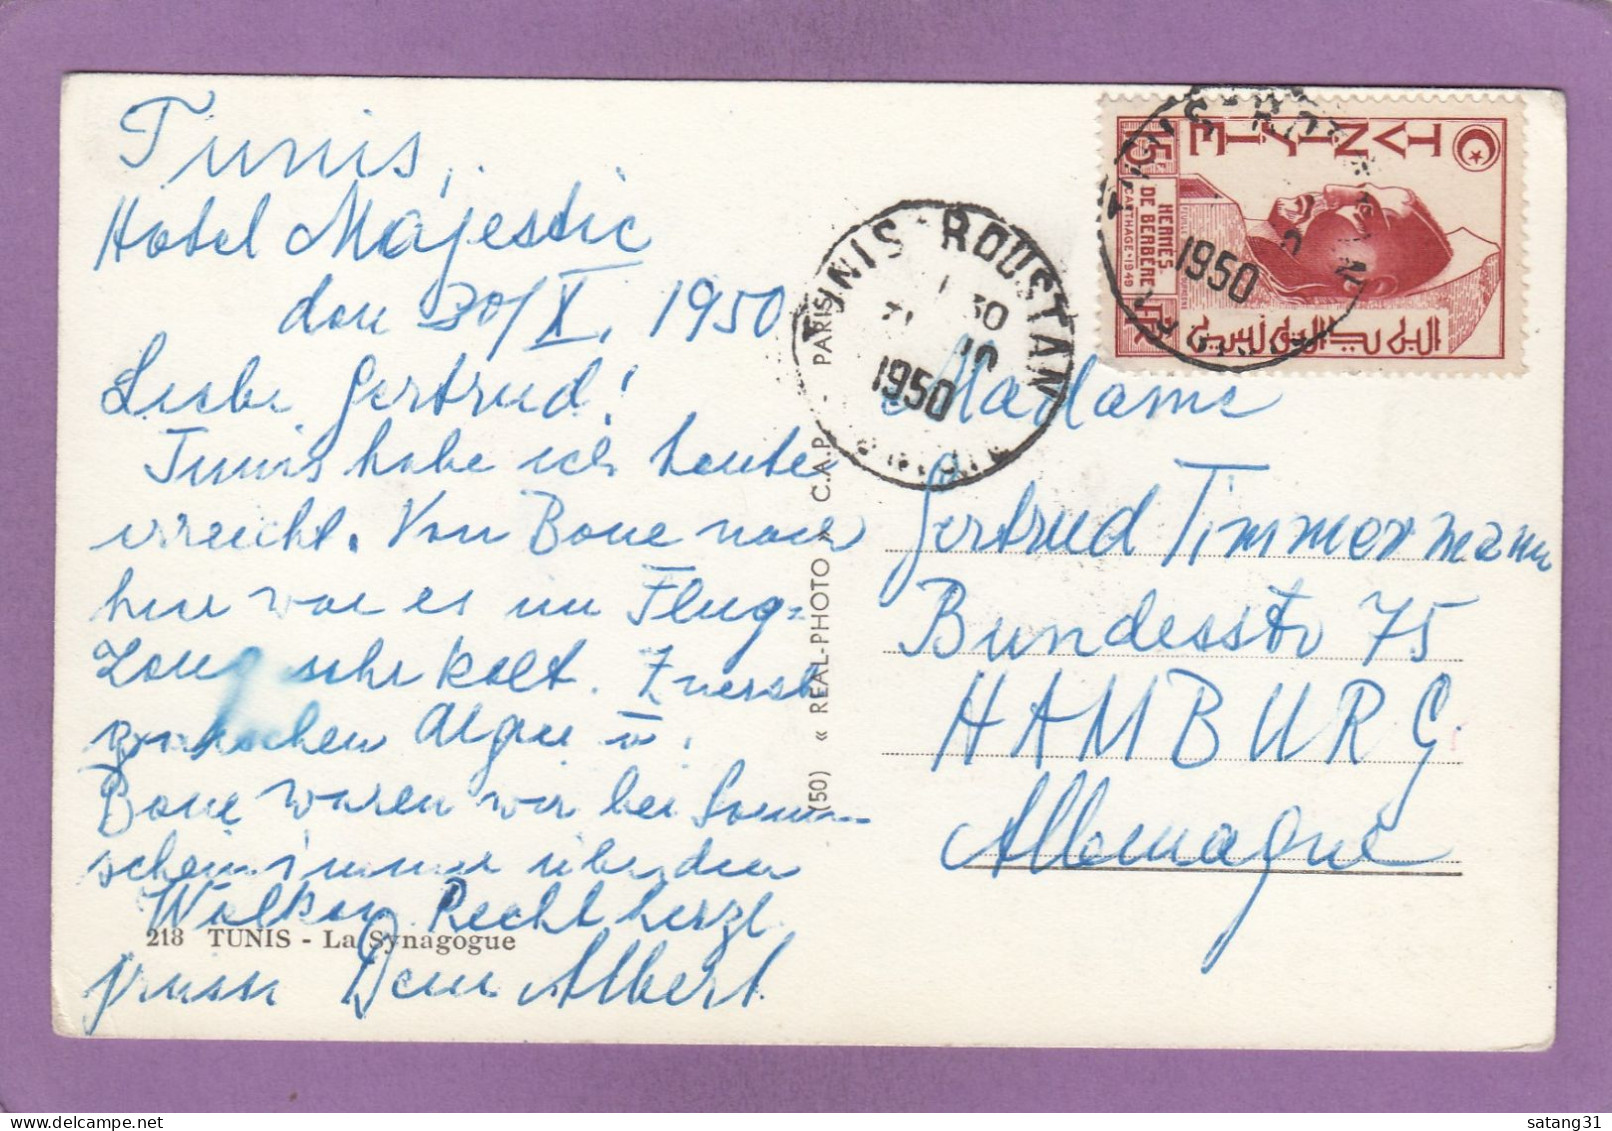 Tunis,
Hotel Majestic
den 30/X. 1950
Liebe Gertrud!
Tunis habe ich heute
erreicht. Von Bone nach
hier war es im Flug-
zeug sehr kalt. Zuerst
zwischen Algier u.
Bone waren wir bei Sonn-
schein immer über den
Wolken. Recht herzl.
218 TUNIS - La Synagogue
Dein Albert
(50) « REAL-PHOTO » C.A.P. - PARIS
TUNIS-ROUSTAN
30
10
1950
TUNISIE
TVNISIE
15F
HERMES
DE BERBERE
CARTHAGE · 1949
15F
1950
Madame
Gertrud Timmermann
Bundesstr 75
HAMBURG
Allemagne
satang31